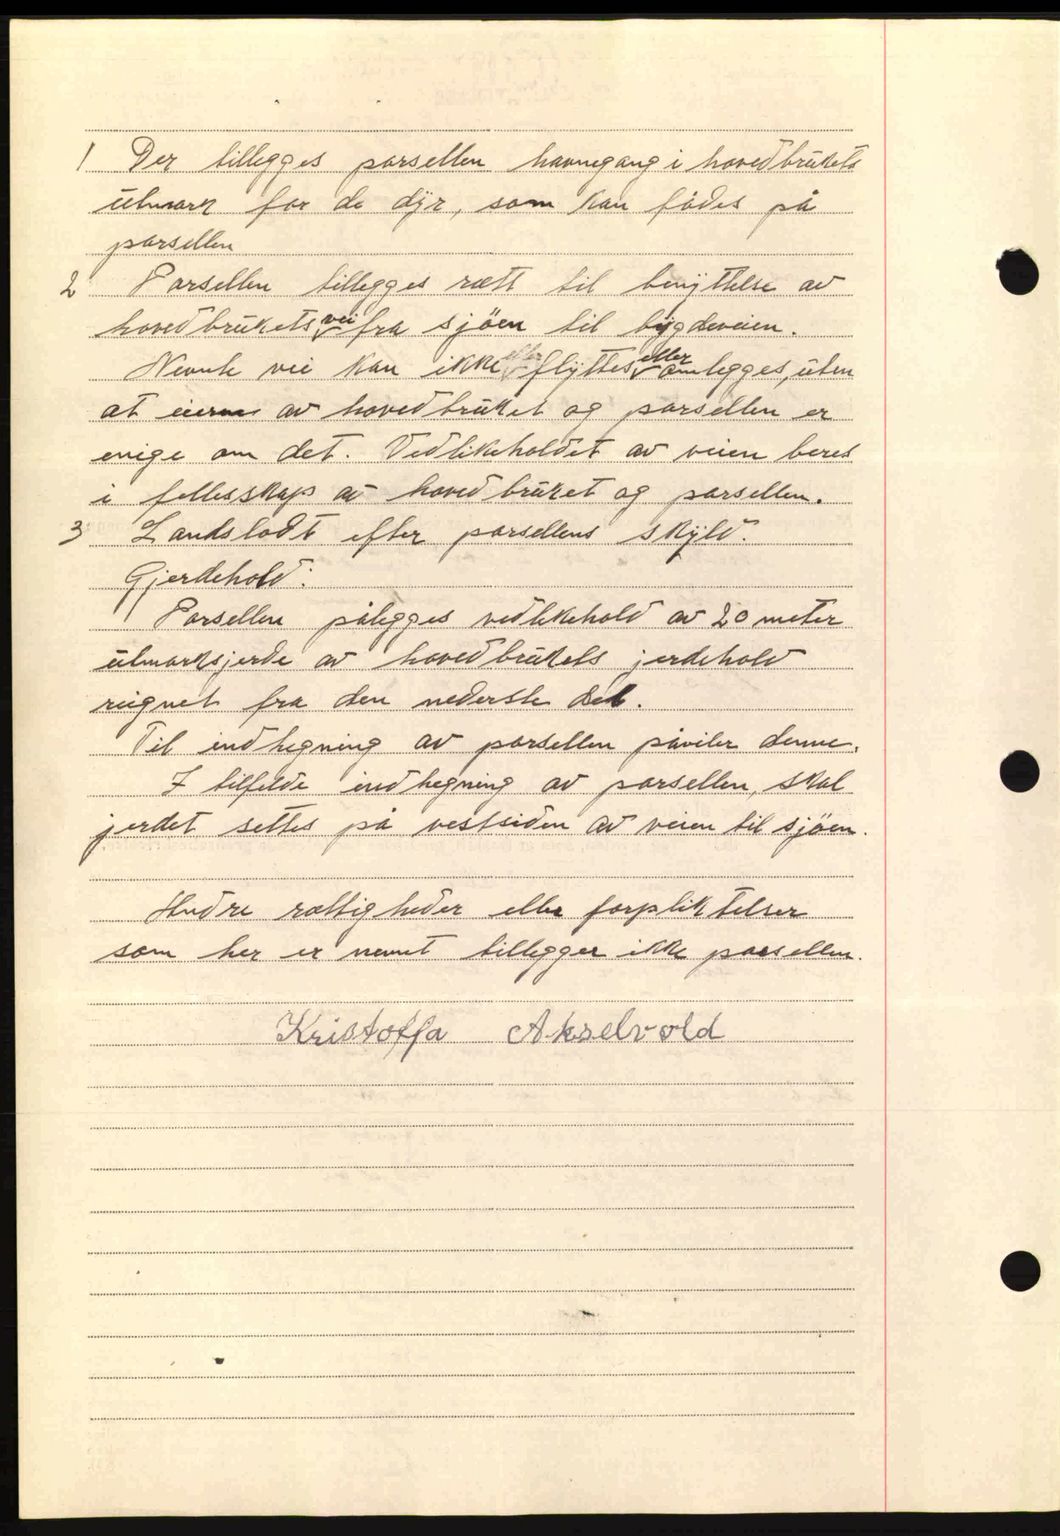 1 Der tillegges parsellen havnegang i hovedbrukets
utmark for de dyr, som kan fødes på
parsellen
2 Parsellen tillegges rætt til benyttelse av
hovedbrukets vei fra sjøen til bygdeveien.
Nevnte vei kan ikke flyttes eller omlegges, uten
at eierne av hovedbruket og parsellen er
enige om det. Vedlikeholdet av veien beres
i fellesskap av hovedbruket og parsellen.
3 Landslodt efter parsellens skyld.
Gjerdehold:
Parsellen pålegges vedlikehold av 20 meter
utmarksjerde av hovedbrukets jerdehold
reignet fra den nederste del.
Til indhegning av parsellen påviler denne.
I tilfelde indhegning av parsellen, skal
jerdet settes på vestsiden av veien til sjöen.
Andre rettigheder eller forpliktelser
som her er nevnt tillegger ikke parsellen.
Kristoffa Akselvold